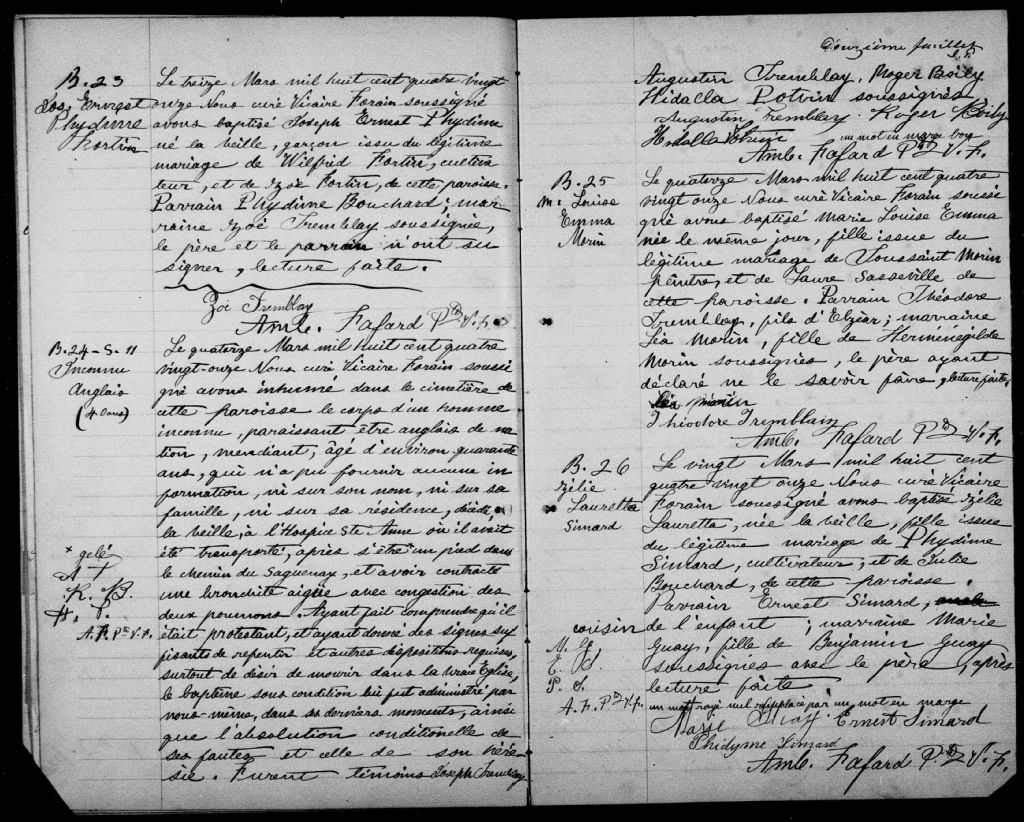 B. 23
Jos. Ernest
Phydime
Fortin
Le treize Mars mil huit cent quatre vingt
onze Nous curé Vicaire Forain soussigné
avons baptisé Joseph Ernest Phydime
né la veille, garçon issu du légitime
mariage de Wilfrid Fortin, cultiva
teur, et de Zoé Fortin, de cette paroisse.
Parrain Phydime Bouchard; mar
raine Zoé Tremblay soussignée,
le père et le parrain n'ont su
signer, lecture faite.
Zoé Tremblay
Amb. Fafard Ptre V. F.
B. 24 - S. 11
Inconnu
Anglais
(40 ans)
Le quatorze Mars mil huit cent quatre
vingt-onze Nous curé Vicaire Forain soussi
gné avons inhumé dans le cimetière de
cette paroisse le corps d'un homme
inconnu, paraissant être anglais de na
tion, mendiant, âgé d'environ quarante
ans, qui n'a pu fournir aucune in
formation, ni sur son nom, ni sur sa
famille, ni sur sa résidence, décédé,
la veille, à l'Hospice Ste Anne où il avait
été transporté, après s'être un pied dans
le chemin du Saguenay, et avoir contracté
une bronchite aigüe avec congestion des
deux poumons. Ayant fait comprendre qu'il
était protestant, et ayant donné des signes suf
fisants de repentir et autres dispositions requises,
surtout de désir de mourir dans la vraie Eglise,
le baptême sous condition lui fut administré par
nous-même, dans ses derniers moments, ainsi
que l'absolution conditionelle de
ses fautes et celle de son héré
sie. Furent témoins Joseph Tremblay
x gelé
A. T.
R. B.
H. P.
A. F. Ptre V. F.
Douzième feuillet
Augustin Tremblay, Roger Boily
Hidalla Potvin soussignés
Augustin Tremblay Roger Boily
Hidalla Potvin un mot en marge bon
Amb. Fafard Ptre V. F.
B. 25
M. Louise
Emma
Morin
Le quatorze Mars mil huit cent quatre
vingt onze Nous curé Vicaire Forain soussi
gné avons baptisé Marie Louise Emma
née le même jour, fille issue du
légitime mariage de Toussaint Morin
peintre, et de Laure Sasseville de
cette paroisse. Parrain Théodore
Tremblay, fils d'Elzéar; marraine
Léa Morin, fille de Herménégilde
Morin soussignés, le père ayant
déclaré ne le savoir faire, lecture faite,
Léa Morin
Théodore Tremblay
Amb. Fafard Ptre V. F.
B. 26
Zélie
Lauretta
Simard
Le vingt Mars mil huit cent
quatre vingt onze Nous curé Vicaire
Forain soussigné avons baptisé Zélie
Lauretta, née la veille, fille issue
du légitime mariage de Phydime
Simard, cultivateur, et de Julie
Bouchard, de cette paroisse.
Parrain Ernest Simard,
cousin de l'enfant; marraine Marie
Guay, fille de Benjamin Guay
soussignés avec le père, après
lecture faite
M. G.
E. S.
P. S.
A. F. Ptre V. F.
un mot rayé nul remplacé par un mot en marge
Marie Guay Ernest Simard
Phidyme Simard
Amb. Fafard Ptre V. F.